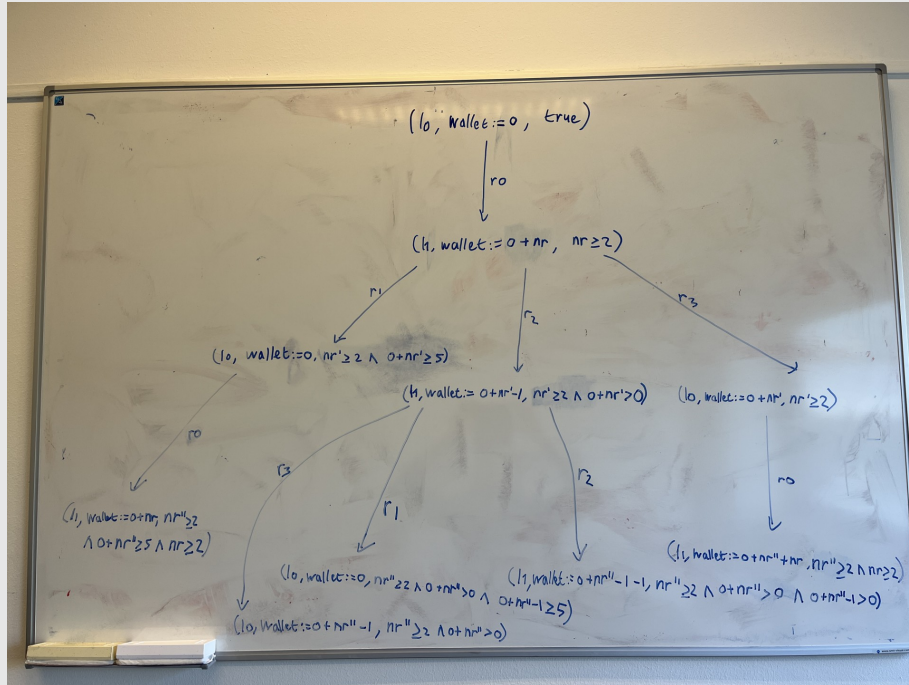 (l0, wallet:=0, true)
r0
(l1, wallet:=0+nr, nr≥2)
r1
r2
r3
(l0, wallet:=0, nr'≥2 ∧ 0+nr'≥5)
(l1, wallet:=0+nr'-1, nr'≥2 ∧ 0+nr'>0)
(l0, wallet:=0+nr', nr'≥2)
r0
r3
r1
r2
r0
(l1, wallet:=0+nr, nr''≥2
∧ 0+nr''≥5 ∧ nr≥2)
(l0, wallet:=0, nr''≥2 ∧ 0+nr''>0 ∧ 0+nr''-1≥5)
(l1, wallet:=0+nr''-1-1, nr''≥2 ∧ 0+nr''>0 ∧ 0+nr''-1>0)
(l1, wallet:=0+nr''+nr, nr''≥2 ∧ nr≥2)
(l0, wallet:=0+nr''-1, nr''≥2 ∧ 0+nr''>0)